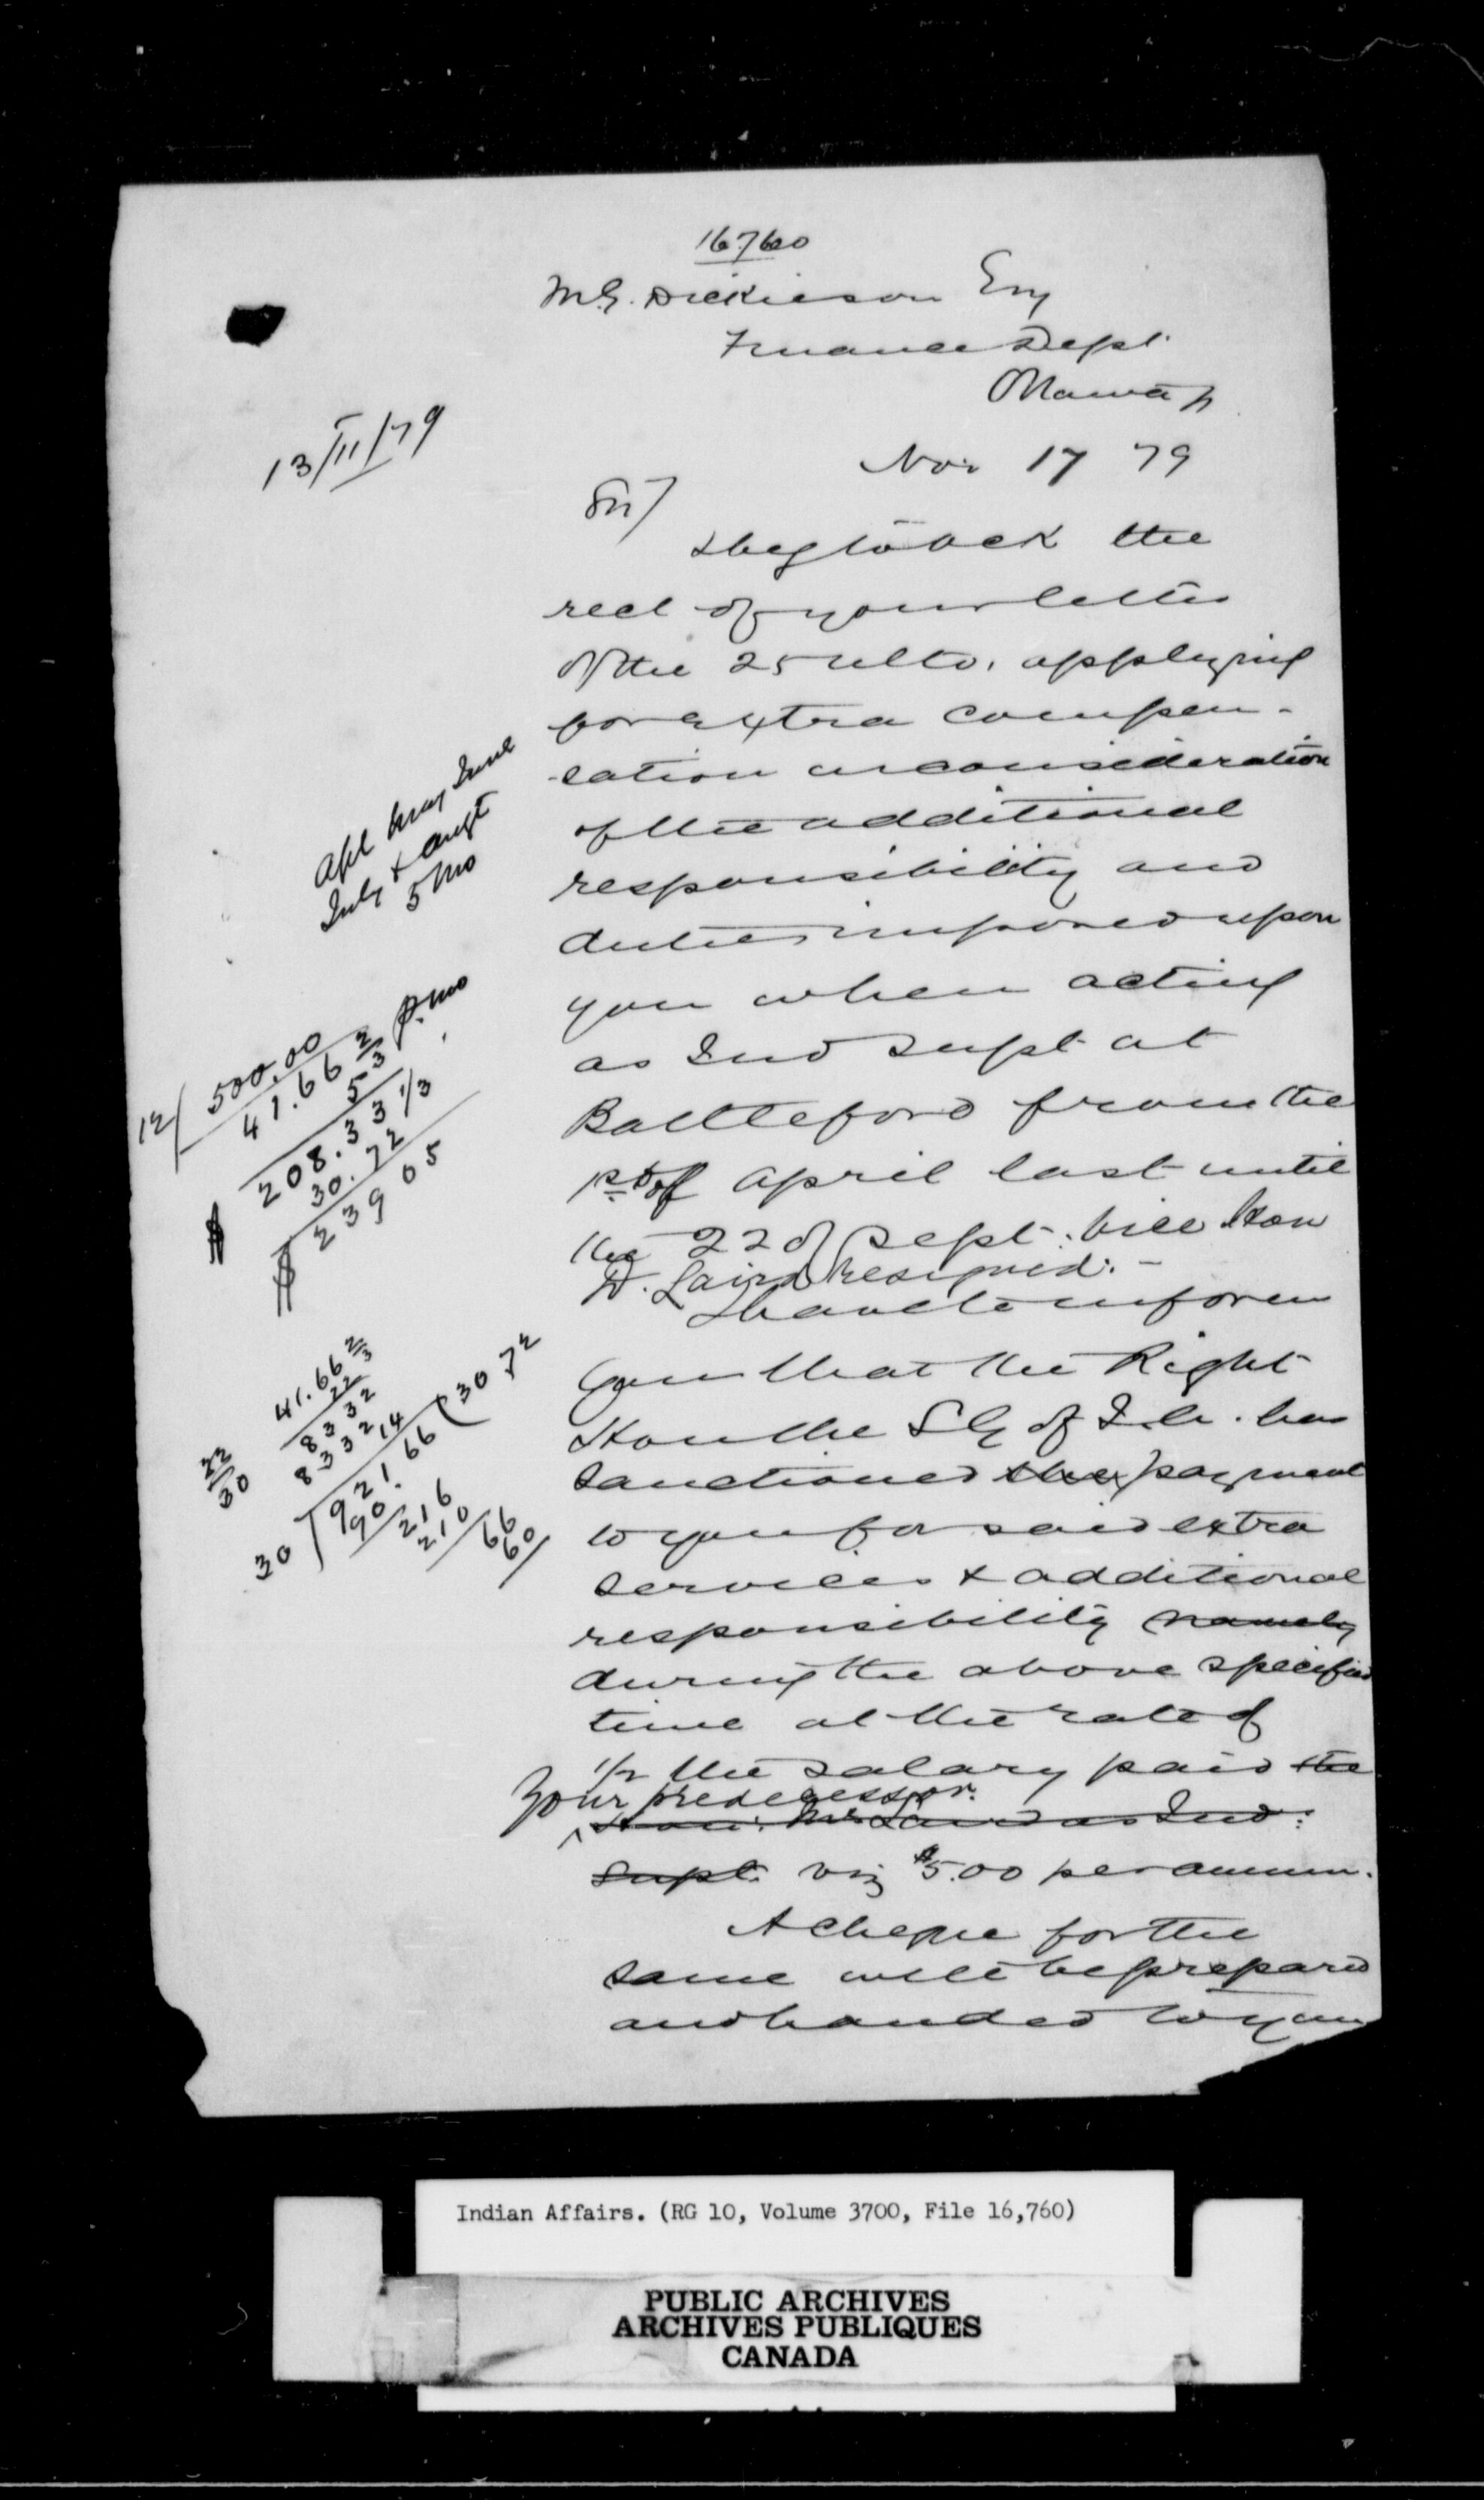 16760
M.G. Dickieson Esq
Finance Dept.
Ottawa
13/11/79
Nov 17 79
Sir/
I beg to ack the
rect of your letter
of the 25 ulto. applying
for extra compen-
sation in consideration
of the additional
responsibility and
duties imposed upon
you when acting
as Ind Supt at
Battleford from the
1st of April last until
the 22 of Sept. vice Hon
D. Laird resigned. -
I have to inform
you that the Right
Hon the S.G. of I.A. has
sanctioned the payment
to you for said extra
services & additional
responsibility namely
during the above specified
time at the rate of
1/2 the salary paid the
your predecessor.
Hon. Mr Laird as Ind.
Supt. viz $500 per annum.
A cheque for the
same will be prepared
and handed to you
Apl May June
July & Augt
5 mo
12/ 500.00
41.66 2/3 p. mo
5
208.33 1/3
30.72
$ 239 05
41.66 2/3
22
8332
8332 14
22/30
30 ) 921.66 ( 30 72
90
216
210
66
60
Indian Affairs. (RG 10, Volume 3700, File 16,760)
PUBLIC ARCHIVES
ARCHIVES PUBLIQUES
CANADA